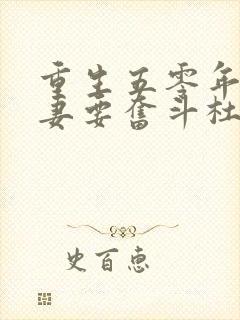 重生五零年
妻要奋斗杜
史百恵